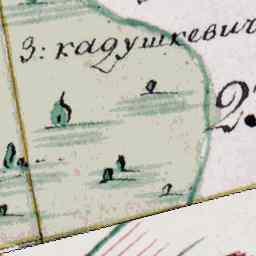 З: кадушкевич
23